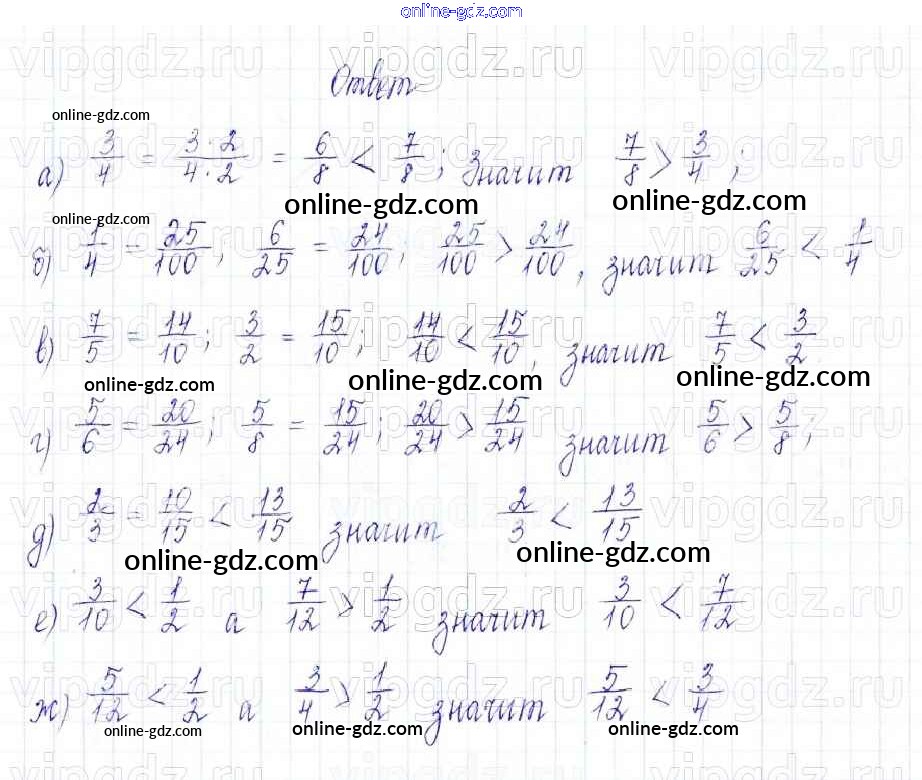 online-gdz.com
vipgdz.ru vipgdz.ru vipgdz.ru vipgdz.ru
Ответ
online-gdz.com
а) 3/4 = 3·2/4·2 = 6/8 < 7/8; Значит 7/8 > 3/4;
online-gdz.com online-gdz.com online-gdz.com
б) 1/4 = 25/100; 6/25 = 24/100; 25/100 > 24/100, значит 6/25 < 1/4
в) 7/5 = 14/10; 3/2 = 15/10; 14/10 < 15/10, значит 7/5 < 3/2
online-gdz.com online-gdz.com online-gdz.com
г) 5/6 = 20/24; 5/8 = 15/24; 20/24 > 15/24 значит 5/6 > 5/8;
д) 2/3 = 10/15 < 13/15 значит 2/3 < 13/15
online-gdz.com online-gdz.com
е) 3/10 < 1/2 а 7/12 > 1/2 значит 3/10 < 7/12
ж) 5/12 < 1/2 а 3/4 > 1/2 значит 5/12 < 3/4
online-gdz.com online-gdz.com online-gdz.com